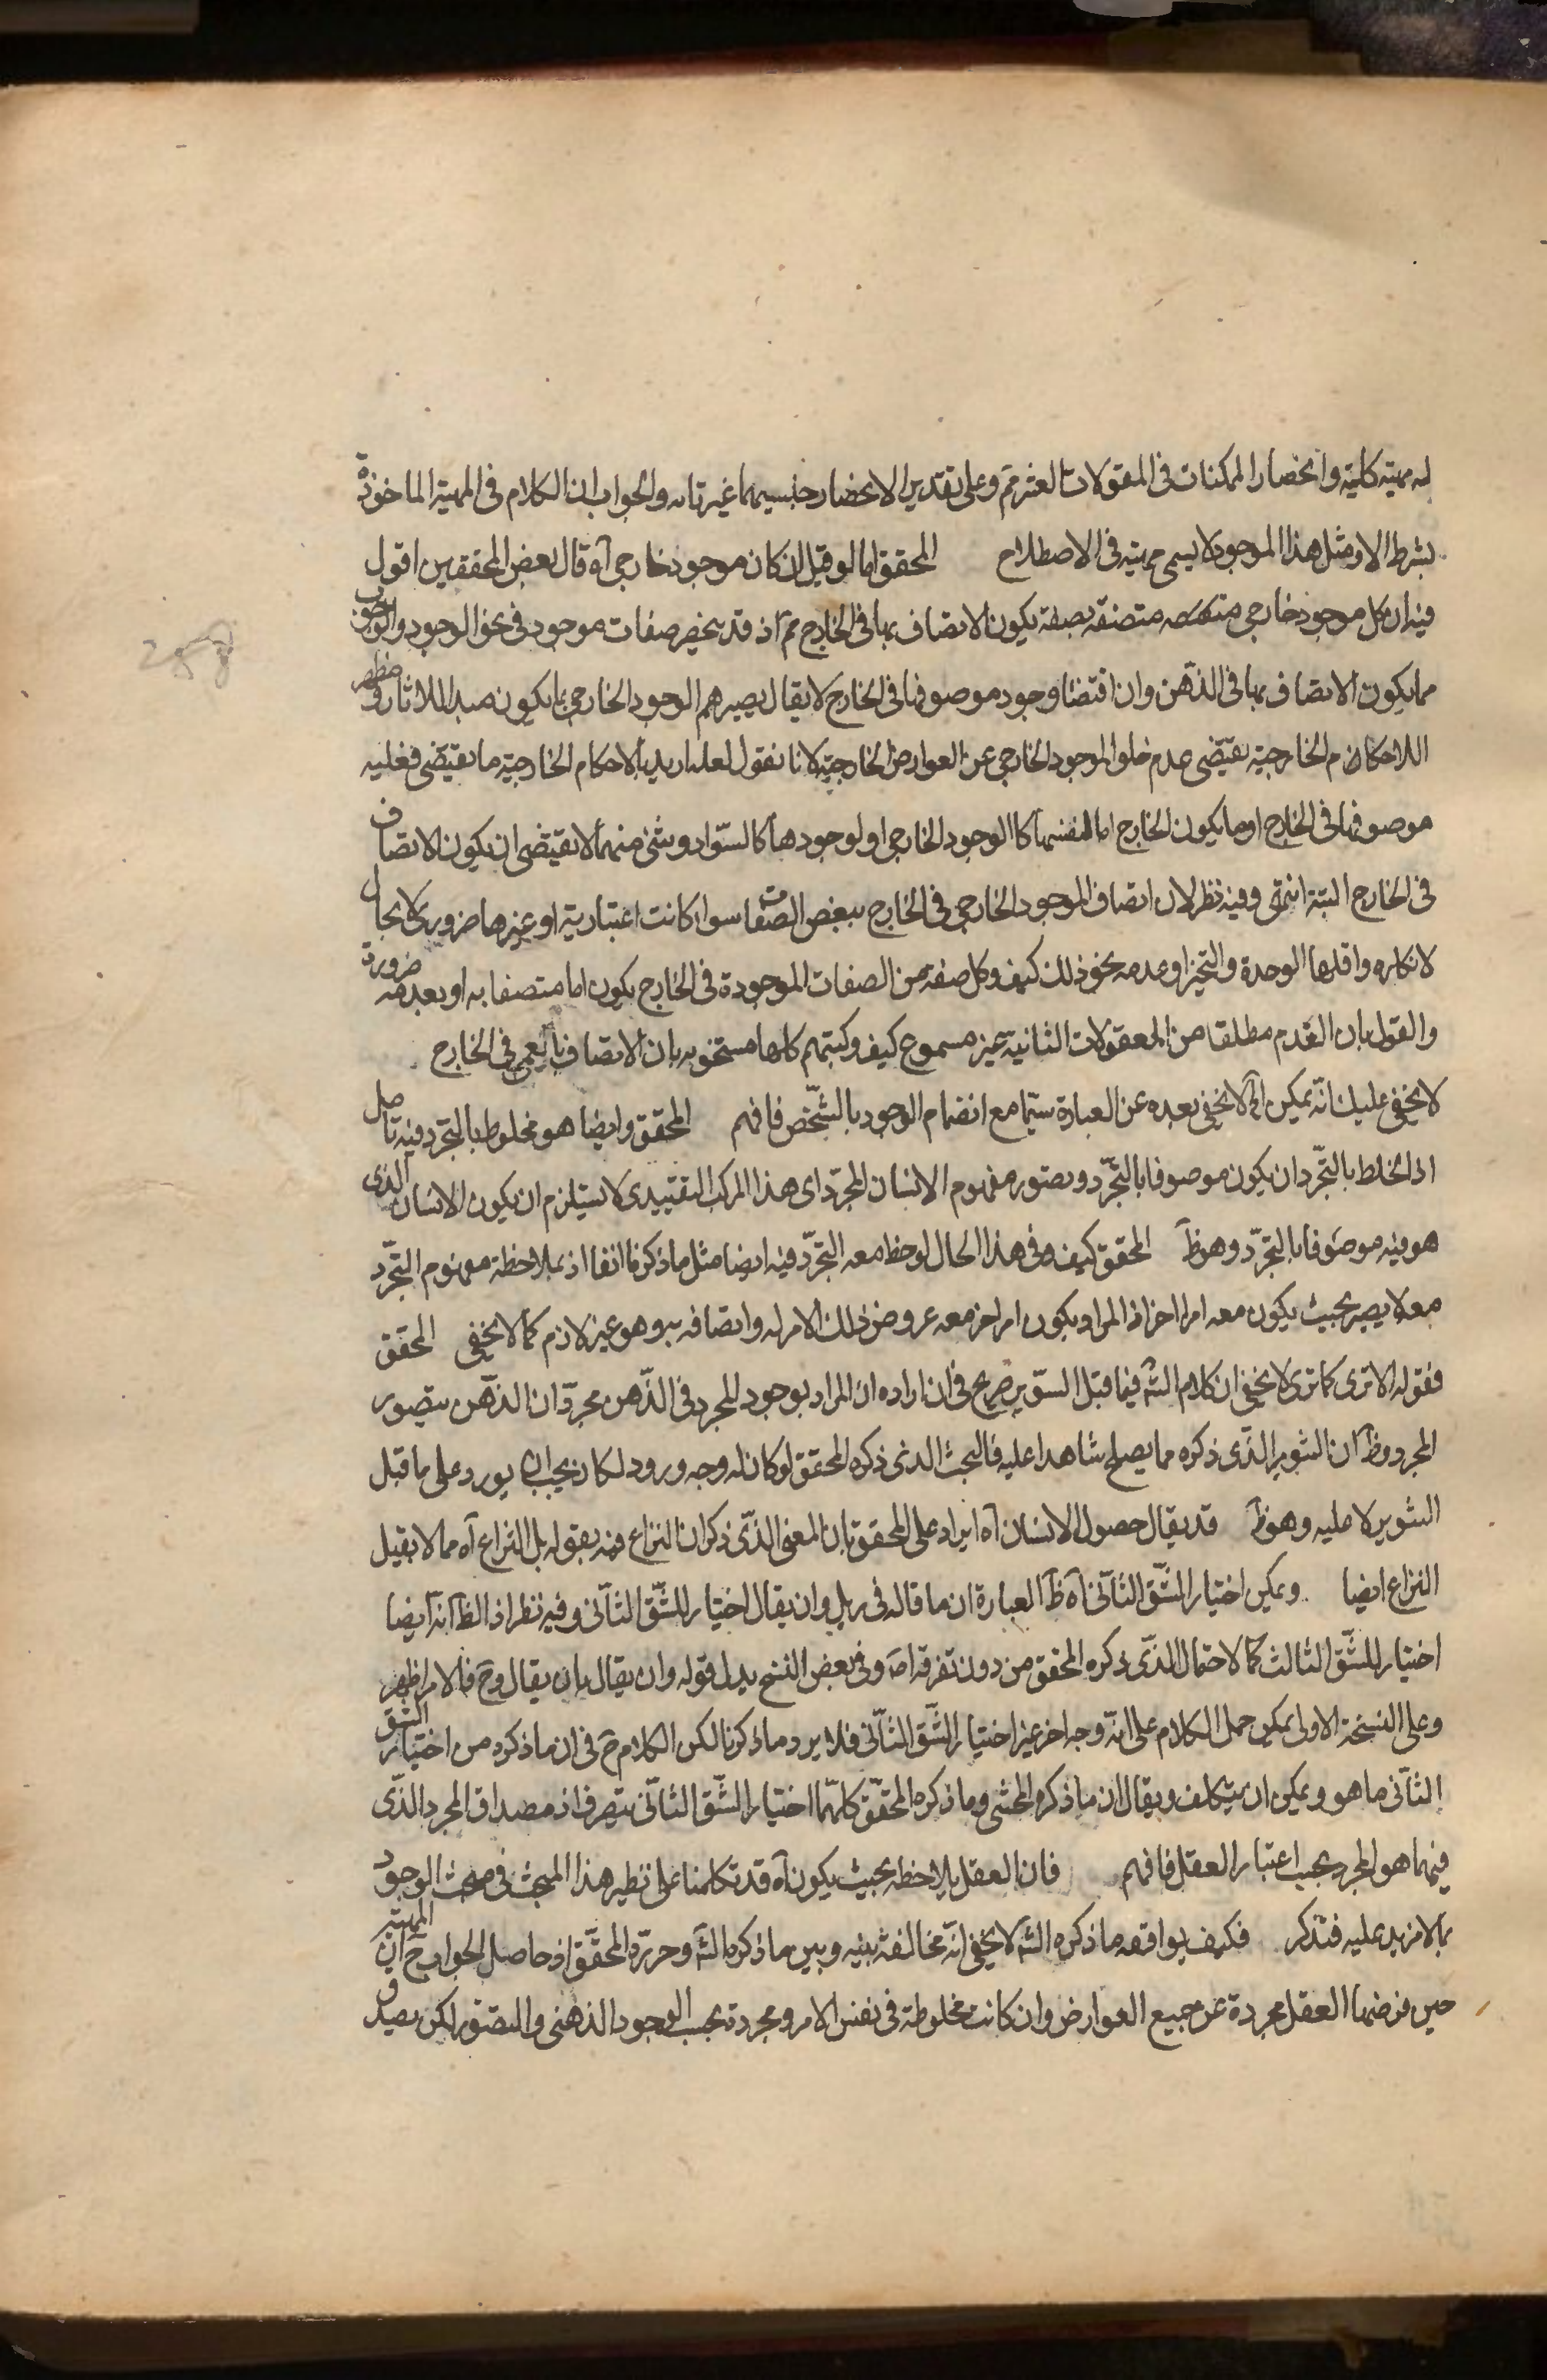 له مهية كلية وانحصار الممكنات في المقولات العشر مم وعلى تقدير الانحصار جنسيهما غير تام والجواب ان الكلام في المهية الماخوذة
بشرط الا ومثل هذا الموجود لا يسمى مهية في الاصطلاح المحقق اما لو قيل ان كان موجود خارجي آه قال بعض المحققين اقول
فيه ان كل موجود خارجي متصفة بصفة يكون الاتصاف بها في الخارج مم اذ قد ينحصر صفات موجود في نحو الوجود والوجوب
مما يكون الاتصاف بها في الذهن وان اقتضا وجود موصوفها في الخارج لا يقال يصيرهم الوجود الخارجي بما يكون مبدا للاثار و مظهر
اللاحكام الخارجية يقتضى عدم خلو الموجود الخارجي عن العوارض الخارجية لانا نقول لعله اريد بالاحكام الخارجية ما يقتضى فعليه
موصوفها في الخارج او ما يكون الخارج اما لنفسها كا الوجود الخارجي او لوجودها كالسواد وشئ منهما لا يقتضى ان يكون الاتصاف
في الخارج البتة انتهى وفيه نظر لان اتصاف الموجود الخارجي في الخارج ببعض الصفات سوا كانت اعتبارية او غيرها ضرورى لا مجال
لانكاره واقلها الوحدة والتحيز او عدمه نحو ذلك كيف وكل صفة من الصفات الموجودة في الخارج يكون اما متصفا به او بعدمه ضرورة
والقول بان العدم مطلقا من المعقولات الثانية غير مسموع كيف وكتبهم كلها مشحونه بان الاتصاف بالعمى في الخارج
لا يخفى عليك انه يمكن آه لا يخفى بعده عن العبارة سيما مع انضمام الوجود بالتشخص فافهم المحقق وايضا هو مخلوط بالتجرد فيه تامل
اذ الخلط بالتجرد ان يكون موصوفا بالتجرد وتصور مفهوم الانسان المجرد اى هذا المركب التقييدى لا يستلزم ان يكون الانسان الذى
هو فيه موصوفا بالتجرد وهو ظ المحقق كيف وفي هذا الحال لوحظ معه التجرد فيه ايضا مثل ما ذكرنا انفا اذ بملاحظة مفهوم التجرد
معه لا يصير بحيث يكون معه امرا اخر اذ المراد بكون امر اخر معه عروض ذلك الامر له واتصافه به وهو غير لازم كما لا يخفى المحقق
فقوله الا ترى كما ترى لا يخفى ان كلام الش فيما قبل التنوير صريح في ان اراده ان المراد بوجود المجرد في الذهن مجرد ان الذهن يتصور
المجرد وظ ان التنوير الذى ذكره مما يصلح شاهدا عليه فالبحث الذى ذكره المحقق لو كان له وجه ورود لكان يجب ان يورد على ما قبل
التنوير لا عليه وهو ظ قد يقال حصول الانسان آه ايراد على المحقق بان المعنى الذى ذكر ان النزاع فيه بقوله بل النزاع آه مما لا يقبل
النزاع ايضا ويمكن اختيار الشق الثانى آه ظ العبارة ان ما قاله في ريل وان يقال اختيار للشق الثانى وفيه نظر اذ الظ انه ايضا
اختيار للشق الثالث كما لاحتمال الذى ذكره المحقق من دون تفرقة اصه وفي بعض النسخ بدل قوله وان يقال بان يقال وح فالامر اظهر
وعلى النسخة الاولى يمكن حمل الكلام على انه وجه اخر غير اختيار الشق الثانى فلا يرد ما ذكرنا لكن الكلام ح في ان ما ذكره من اختيار الشق
الثانى ما هو ويمكن ان يتكلف ويقال ان ما ذكره المحشى وما ذكره المحقق كلهما اختيار الشق الثانى بتصرف اذ مصداق المجرد الذى
فيهما هو المجرد بحسب اعتبار العقل فافهم فان العقل يلاحظه بحيث يكون آه قد تكلمنا على نظير هذا المبحث في مبحث الوجود
بما لا مزيد عليه فتذكر فكيف يوافقه ما ذكره الش لا يخفى انه مخالفة بينه وبين ما ذكره الش وحرره المحقق اذ حاصل الجواب ح ان المهية
حين فرضها العقل مجردة عن جميع العوارض وان كانت مخلوطة في نفس الامر ومجردة بحسب الوجود الذهنى والتصور لكن يصدق